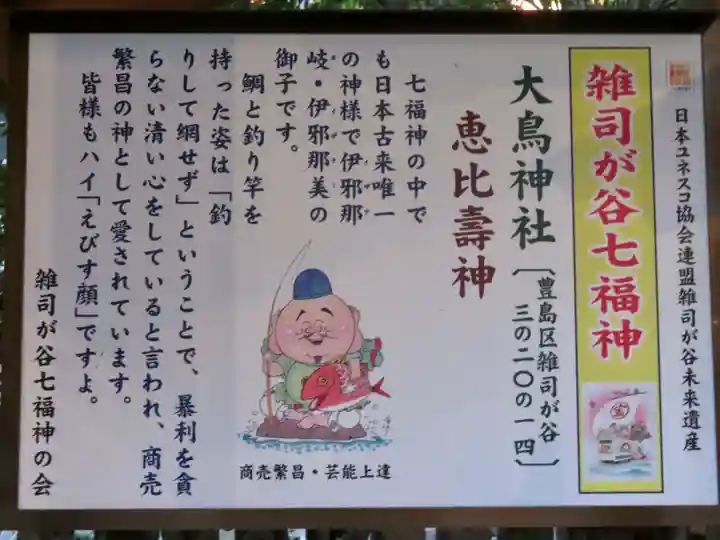 日本ユネスコ協会連盟雑司が谷未来遺産
雑司が谷七福神
大鳥神社〔豊島区雑司が谷
三の二〇の一四〕
恵比壽神
七福神の中で
も日本古来唯一
の神様で伊邪那
岐・伊邪那美の
御子です。
鯛と釣り竿を
持った姿は「釣
りして網せず」ということで、暴利を貪
らない清い心をしていると言われ、商売
繁昌の神として愛されています。
皆様もハイ「えびす顔」ですよ。
雑司が谷七福神の会
商売繁昌・芸能上達